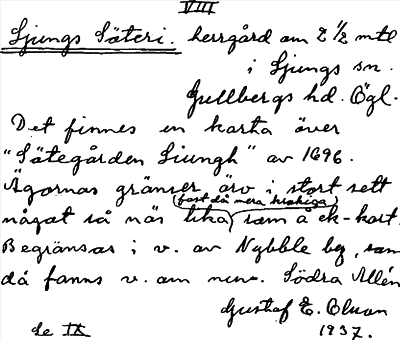 VIII
Ljungs Säteri. herrgård om 2 1/2 mtl
i Ljungs sn.
Gullbergs hd. Ögl.
Det finnes en karta över
"Sätegården Liungh" av 1696.
Ägornas gränser äro i stort sett
(fast då mera krokiga)
något så när lika som å ek-kart.
Begränsas i v. av Nybble by, som
då fanns v. om nuv. Södra Allén
Gustaf E.
de IX 1937.